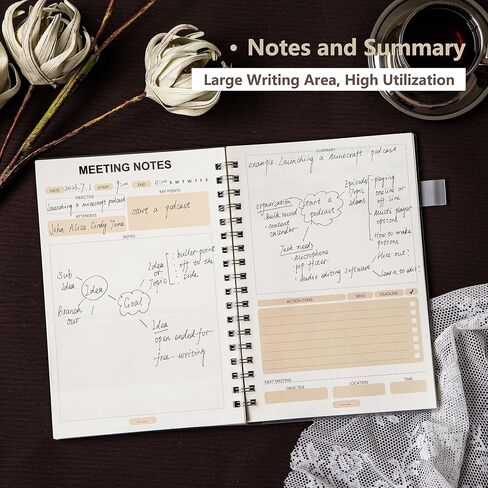 • Notes and Summary
Large Writing Area, High Utilization
MEETING NOTES
DATE 2023.7.1 START 9:00 END 11:00 S M T W T F S
OBJECTIVE
Launching a minecraft podcast
KEY POINTS
start a podcast
ATTENDEES
John, Alisa, Cindy,
NOTES
Sub
Idea
Idea
Branch
out
Goal
Idea
or
Topic
bullet-point
off to the
side
Idea
open ended for
free-writing
SUMMARY
example: Launching a minecraft podcast
organization
• Bulk record
• content
calendar
start a
podcast
Episode/
Topic
Ideas
playing
online or
off line
Multi player
options
How to make
potions
Tech needs
Microphone
pop filter
Audio editing software
Have one?
Learn to edit?
ACTION ITEMS WHO DEADLINE ✓
NEXT MEETING
OBJECTIVE LOCATION TIME